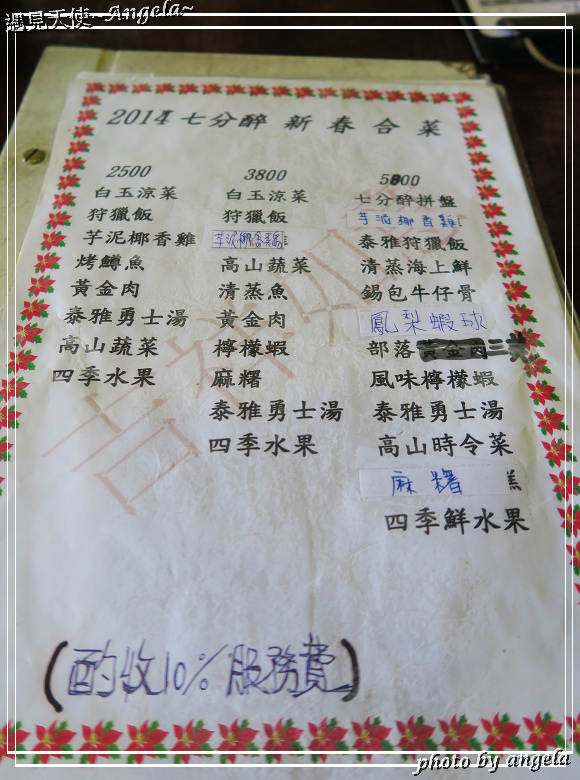 遇見天使~Angela~
2014 七分醉 新春合菜
2500
白玉涼菜
狩獵飯
芋泥椰香雞
烤鱒魚
黃金肉
泰雅勇士湯
高山蔬菜
四季水果
3800
白玉涼菜
狩獵飯
芋泥椰香雞
高山蔬菜
清蒸魚
黃金肉
檸檬蝦
麻糬
泰雅勇士湯
四季水果
5800
七分醉拼盤
芋泥椰香雞
泰雅狩獵飯
清蒸海上鮮
錫包牛仔骨
鳳梨蝦球
部落黃金肉三
風味檸檬蝦
泰雅勇士湯
高山時令菜
麻糬
四季鮮水果
(酌收10%服務費)
photo by angela